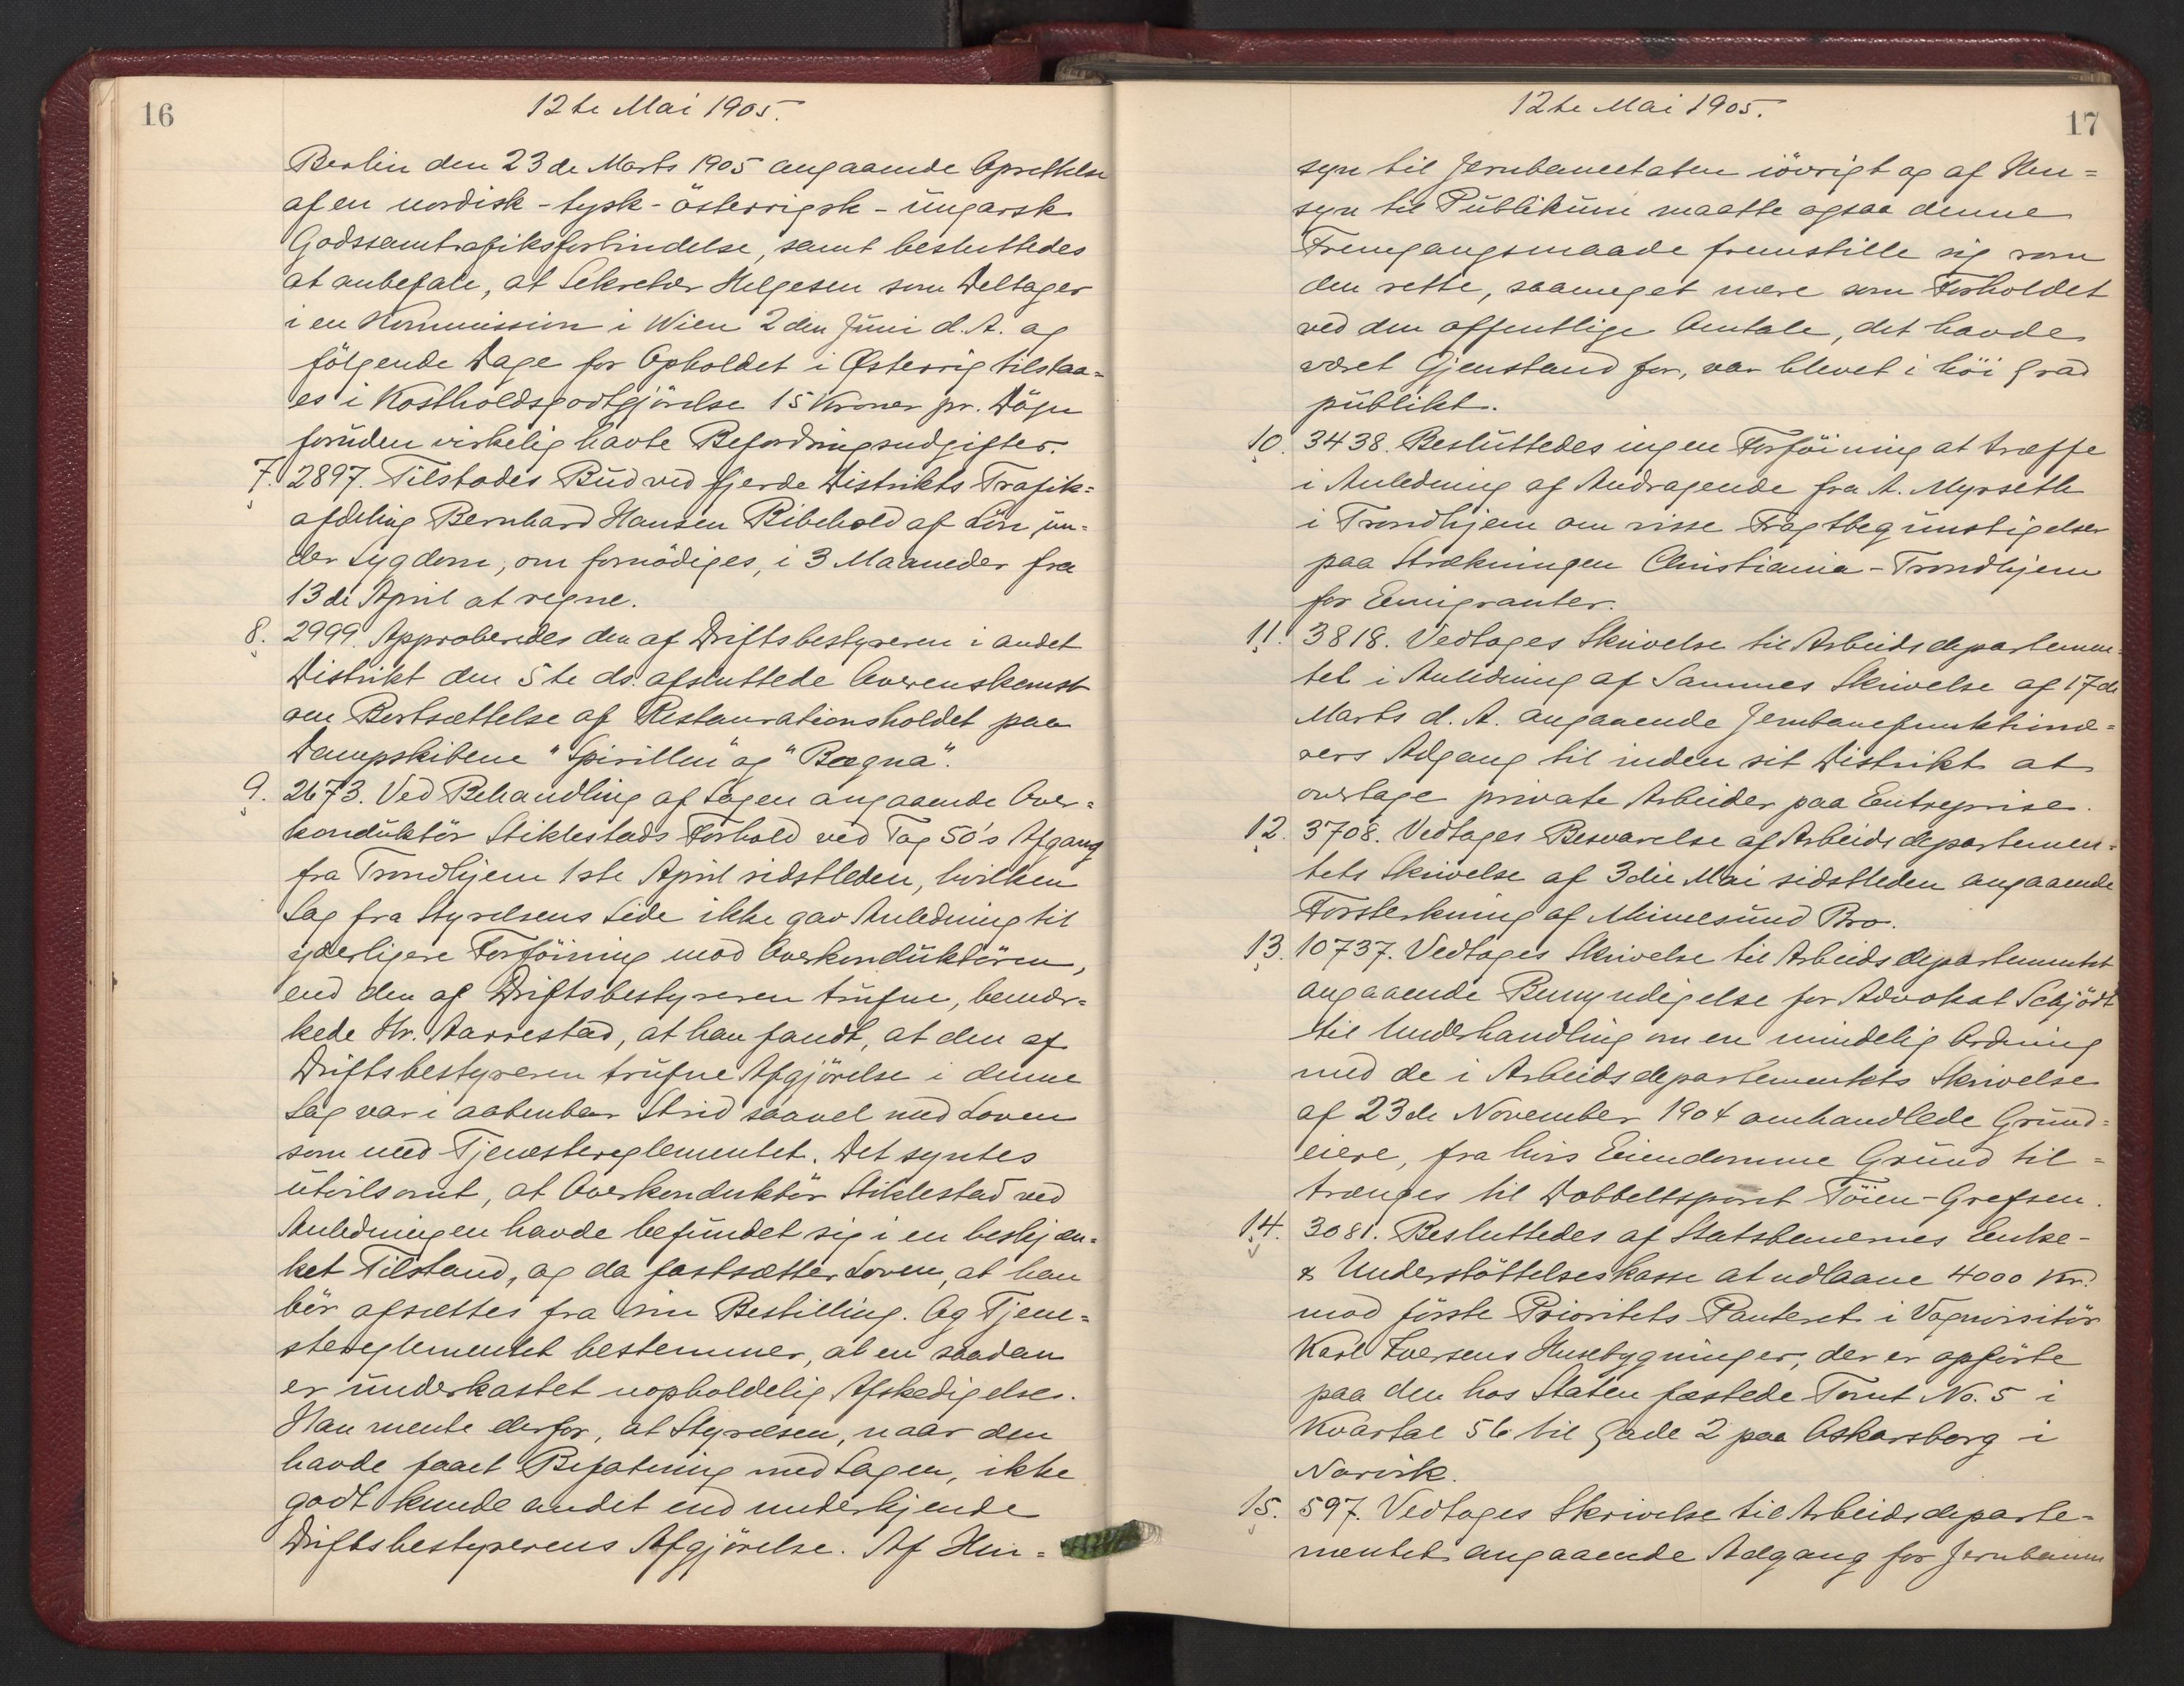 16
12te Mai 1905.
Berlin den 23de Marts 1905 angaaende Oprettelse
af en nordisk-tysk-österrigsk-ungarsk
Godssamtrafiksforbindelse, samt besluttedes
at anbefale, at Sekretær Helgesen som Deltager
i en Kommission i Wien 2den Juni d. A. og
fölgende Dage for Opholdet i Østerrig tilstaa=
es i Kostholdsgodtgjörelse 15 Kroner pr. Dögn
foruden virkelig havte Befordringsudgifter.
7. 2897. Tilstodes Bud ved fjerde Distrikts Trafik=
afdeling Bernhard Hansen Bibehold af Lön un=
der Sygdom, om fornödiges, i 3 Maaneder fra
13de April at regne.
8. 2999. Approberedes den af Driftsbestyreren i andet
Distrikt den 5te ds. afsluttede Overenskomst
om Bortsættelse af Restaurationsholdet paa
Dampskibene "Spirillen" og "Bægna".
9. 2673. Ved Behandling af Sagen angaaende Over=
konduktör Stiklestads Forhold ved Tog 50's Afgang
fra Trondhjem 1ste April sidstleden, hvilken
Sag fra Styrelsens Side ikke gav Anledning til
yderligere Forföining mod Overkonduktören,
end den af Driftsbestyreren trufne, bemær=
kede Hr. Aarrestad, at han fandt, at den af
Driftsbestyreren trufne Afgjörelse i denne
Sag var i aabenbar Strid saavel med Loven
som med Tjenestereglementet. Det syntes
utvilsomt, at Overkonduktör Stiklestad ved
Anledningen havde befundet sig i en beskjæn=
ket Tilstand, og da fastsætter Loven, at han
bör afsættes fra sin Bestilling. Og Tjene=
stereglementet bestemmer, at en saadan
er underkastet uopholdelig Afskedigelse.
Han mente derfor, at Styrelsen, naar den
havde faaet Befatning med Sagen, ikke
godt kunde andet end underkjende
Driftsbestyrerens Afgjörelse. Af Hen=
12te Mai 1905.
17
syn til Jernbaneetaten iövrigt og af Hen=
syn til Publikum maatte ogsaa denne
Fremgangsmaade fremstille sig som
den rette, saameget mere som Forholdet
ved den offentlige Omtale, det havde
været Gjenstand for, var blevet i höi Grad
publikt.
10. 3438. Besluttedes ingen Forföining at træffe
i Anledning af Andragende fra A. Myrseth
i Trondhjem om visse Fragtbegunstigelser
paa Strækningen Christiania-Trondhjem
for Emigranter.
11. 3818. Vedtoges Skrivelse til Arbeidsdepartemen=
tet i Anledning af Sammes Skrivelse af 17de
Marts d. A. angaaende Jernbanefunktionæ=
rers Adgang til inden sit Distrikt at
overtage private Arbeider paa Entreprise.
12. 3708. Vedtoges Besvarelse af Arbeidsdepartemen=
tets Skrivelse af 3die Mai sidstleden angaaende
Forsterkning af Minnesund Bro.
13. 10737. Vedtoges Skrivelse til Arbeidsdepartementet
angaaende Bemyndigelse for Advokat Schjödt
til Underhandling om en mindelig Ordning
med de i Arbeidsdepartementets Skrivelse
af 23de November 1904 omhandlede Grund=
eiere, fra hvis Eiendomme Grund til=
trænges til Dobbeltsporet Töien-Grefsen.
14. 3081. Besluttedes af Statsbanernes Enke-
& Understöttelseskasse at udlaane 4000 Kr.
mod förste Prioritets Panteret i Vognvisitör
Karl Iversens Husebygninger, der er opförte
paa den hos Staten fæstede Tomt No. 5 i
Kvartal 56 til Gade 2 paa Oskarsborg i
Narvik.
15. 597. Vedtoges Skrivelse til Arbeidsdeparte=
mentet angaaende Adgang for Jernbanen